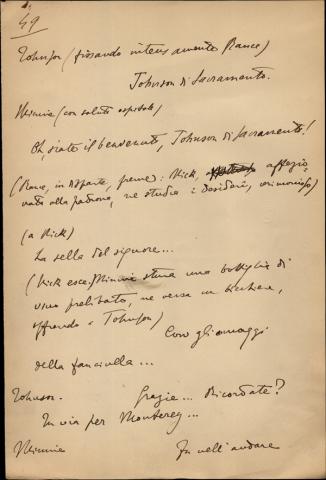 49
Johnson (fissando intensamente Rance)
Johnson di Sacramento.
Minnie (con saluto ospitale)
Oh, siate il benvenuto, Johnson di Sacramento!
(Rance, in disparte, freme: Nick, affezio-
nato alla padrona, ne studia i desideri,
(a Nick)
La sella del signore...
(Nick esce. Minnie stura una bottiglia di
vino prelibato, ne versa un bicchiere,
offrendo a Johnson)
Con gli omaggi
della fanciulla...
Johnson. Grazie... Ricordate?
In via per Monterey...
Minnie Fu nell'andare